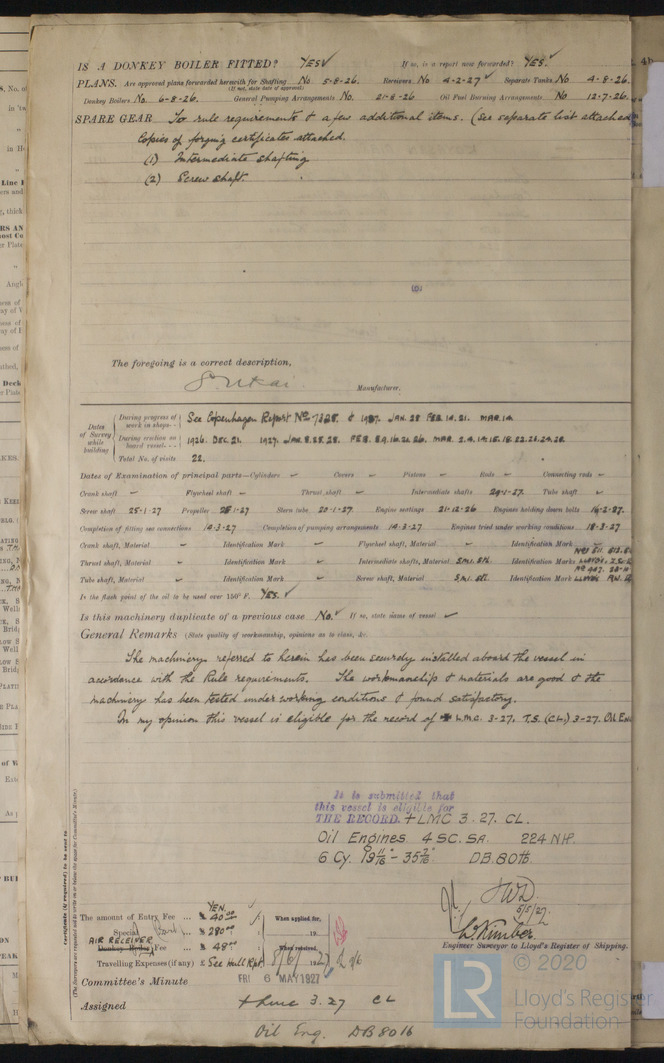 IS A DONKEY BOILER FITTED? YES ✓ If so, is a report now forwarded? YES. ✓
PLANS. Are approved plans forwarded herewith for Shafting No 5-8-26. Receivers No 4-2-27 ✓ Separate Tanks No 4-8-26.
(If not, state date of approval)
Donkey Boilers No. 6-8-26. General Pumping Arrangements No. 21-8-26 Oil Fuel Burning Arrangements No 12-7-26.
SPARE GEAR To rule requirements & a few additional items. (See separate list attached
Copies of forging certificates attached.
(1) Intermediate shafting
(2) Screw shaft.
The foregoing is a correct description,
Manufacturer.
Dates of Survey while building
During progress of work in shops-- See Copenhagen Report No 7328. & 1927. JAN. 28 FEB. 14. 21. MAR. 14
During erection on board vessel--- 1926. DEC. 21. 1927. JAN. 8. 25. 28. FEB. 8.9.16.21.26. MAR. 2.4.14.15.18.22.23.24.28.
Total No. of visits 22.
Dates of Examination of principal parts—Cylinders Covers Pistons Rods Connecting rods
Crank shaft Flywheel shaft Thrust shaft Intermediate shafts 29-1-27. Tube shaft
Screw shaft 25-1-27 Propeller 25-1-27 Stern tube 20-1-27. Engine seatings 21-12-26 Engines holding down bolts 16-2-27.
Completion of fitting sea connections 14-3-27 Completion of pumping arrangements 14-3-27 Engines tried under working conditions 18-3-27
Crank shaft, Material Identification Mark Flywheel shaft, Material Identification Mark
Thrust shaft, Material Identification Mark Intermediate shafts, Material S.M.I. Stl. Identification Marks LLOYDS.
Tube shaft, Material Identification Mark Screw shaft, Material S.M.I. Stl. Identification Mark LLOYDS
Is the flash point of the oil to be used over 150° F. YES. ✓
Is this machinery duplicate of a previous case No. ✓ If so, state name of vessel
General Remarks (State quality of workmanship, opinions as to class, &c.
The machinery referred to herein has been securely installed aboard the vessel in
accordance with the Rule requirements. The workmanship & materials are good & the
machinery has been tested under working conditions & found satisfactory.
In my opinion this vessel is eligible for the record of + L.M.C. 3-27. T.S. (C.L.) 3-27. Oil Eng
It is submitted that
this vessel is eligible for
THE RECORD. + LMC 3. 27. CL.
Oil Engines 4 SC. SA. 224 NHP.
6 Cy. DB. 80 lb.
5/5/27.
The amount of Entry Fee ... YEN. 40.00 When applied for,
Special ... 280.00 19
AIR RECEIVER Donkey Boiler Fee ... 48.00 When received,
Travelling Expenses (if any) £ See Hull Rpt. 8/6/1927
L. Kimber
Engineer Surveyor to Lloyd's Register of Shipping.
Committee's Minute FRI 6 MAY 1927
Assigned + Lmc 3.27 CL
Oil Eng. DB 80 lb
Certificate (if required) to be sent to
(The Surveyors are requested not to write on or below the space for Committee's Minute.)
LR
© 2020
Lloyd's Register
Foundation